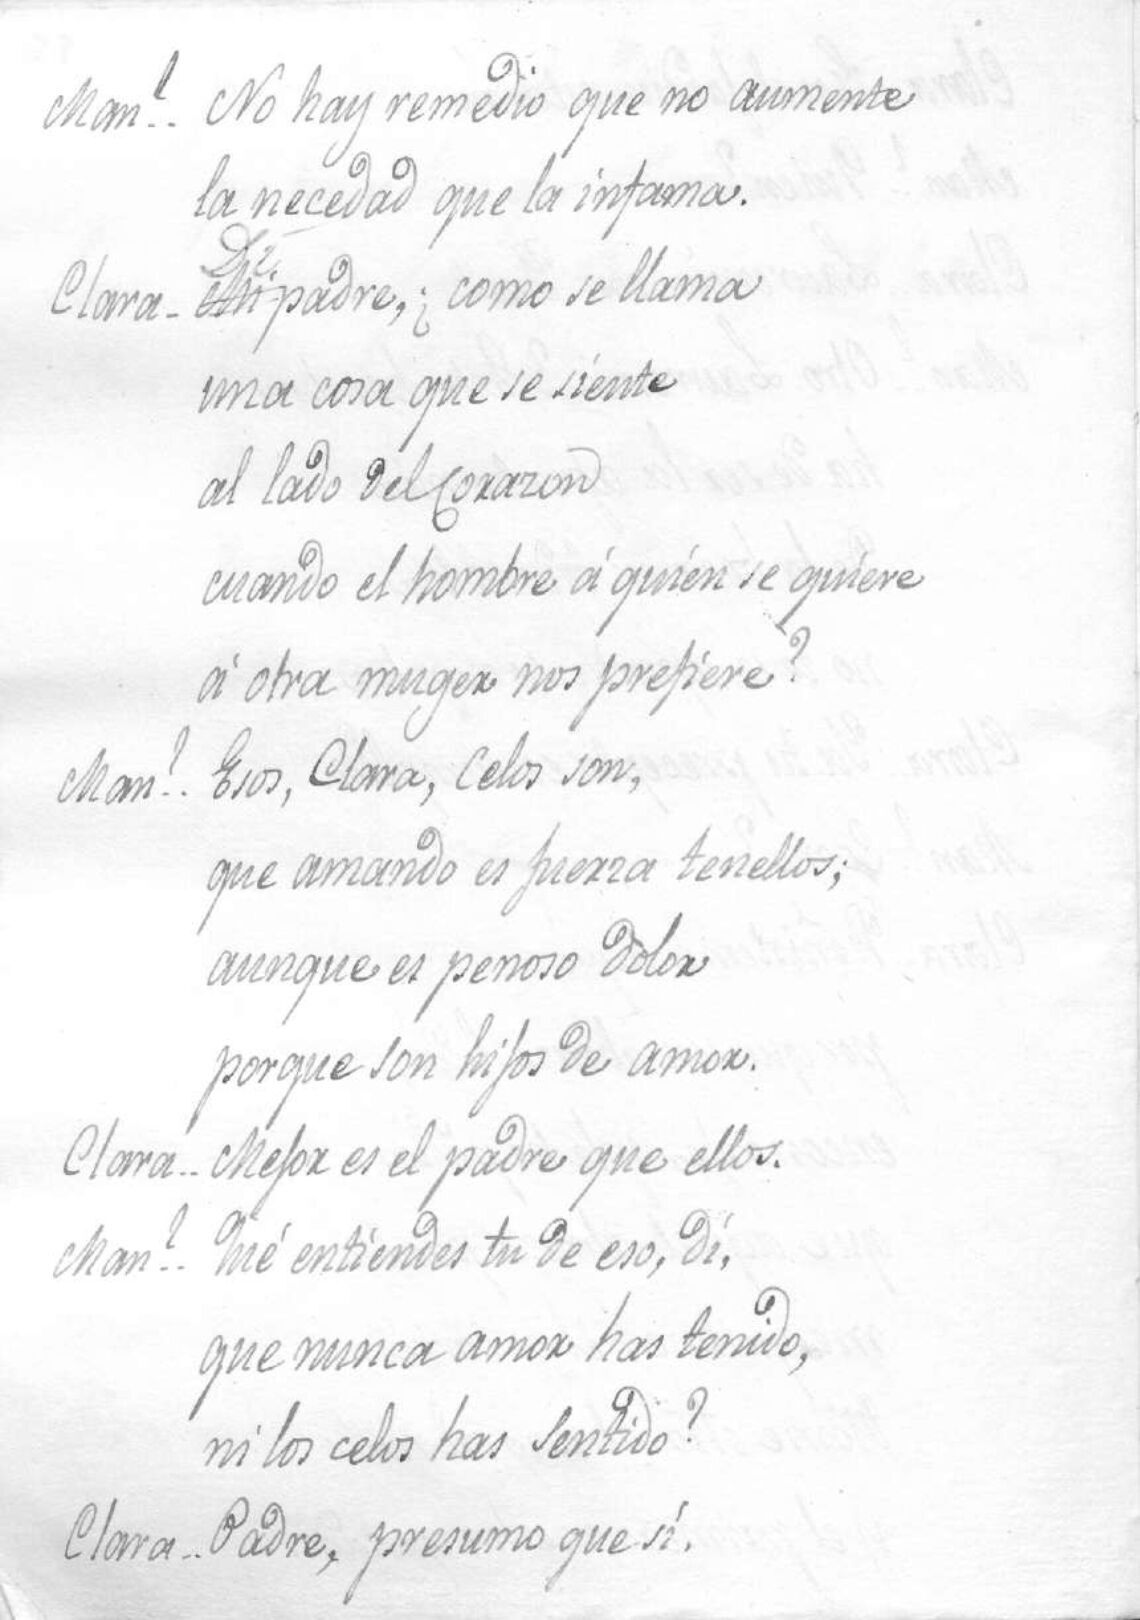 Man.l.. No hay remedio que no aumente
la necedad que la infama.
Di
Clara- Mi padre, ¿como se llama
una cosa que se siente
al lado del Corazon
cuando el hombre á quién se quiere
á otra muger nos prefiere?
Man.l.. Esos, Clara, Celos son,
que amando es fuerza tenellos;
aunque es penoso dolor
porque son hijos de amor.
Clara.. Mejor es el padre que ellos.
Man.l.. Qué entiendes tu de eso, di,
que nunca amor has tenido,
ni los celos has Sentido?
Clara.. Padre, presumo que sí.